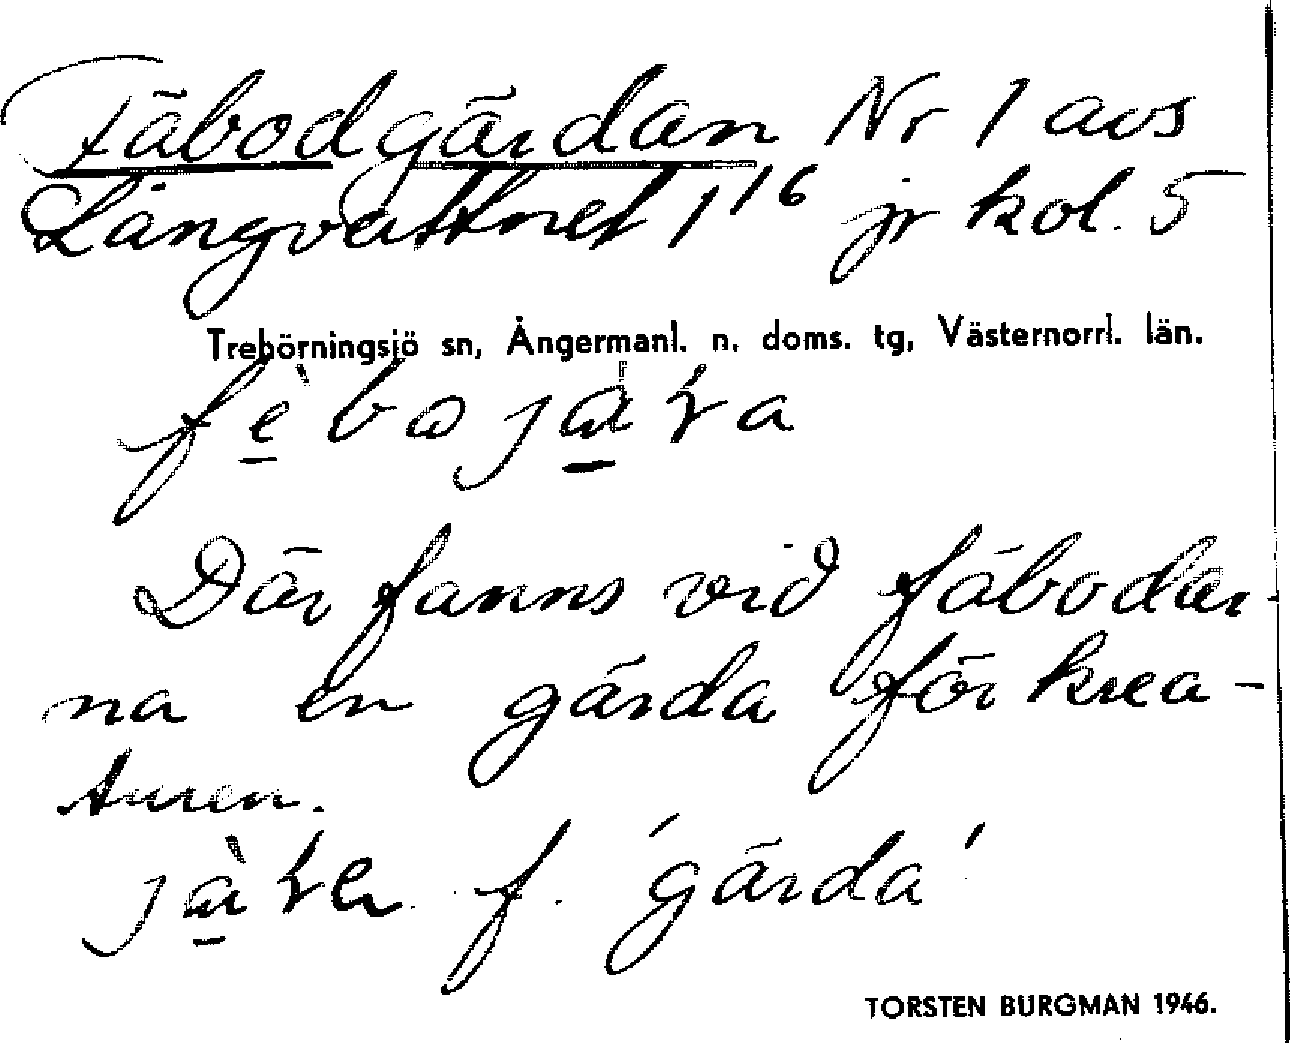 Fäbodgärdan Nr 1 avs
Långvattnet 1¹⁶ jr kol. 5
Trehörningsjö sn, Ångermanl. n. doms. tg, Västernorrl. län.
Där fanns vid fäbodar-
na en gärda för krea-
turen.
f. 'gärda'
TORSTEN BURGMAN 1946.